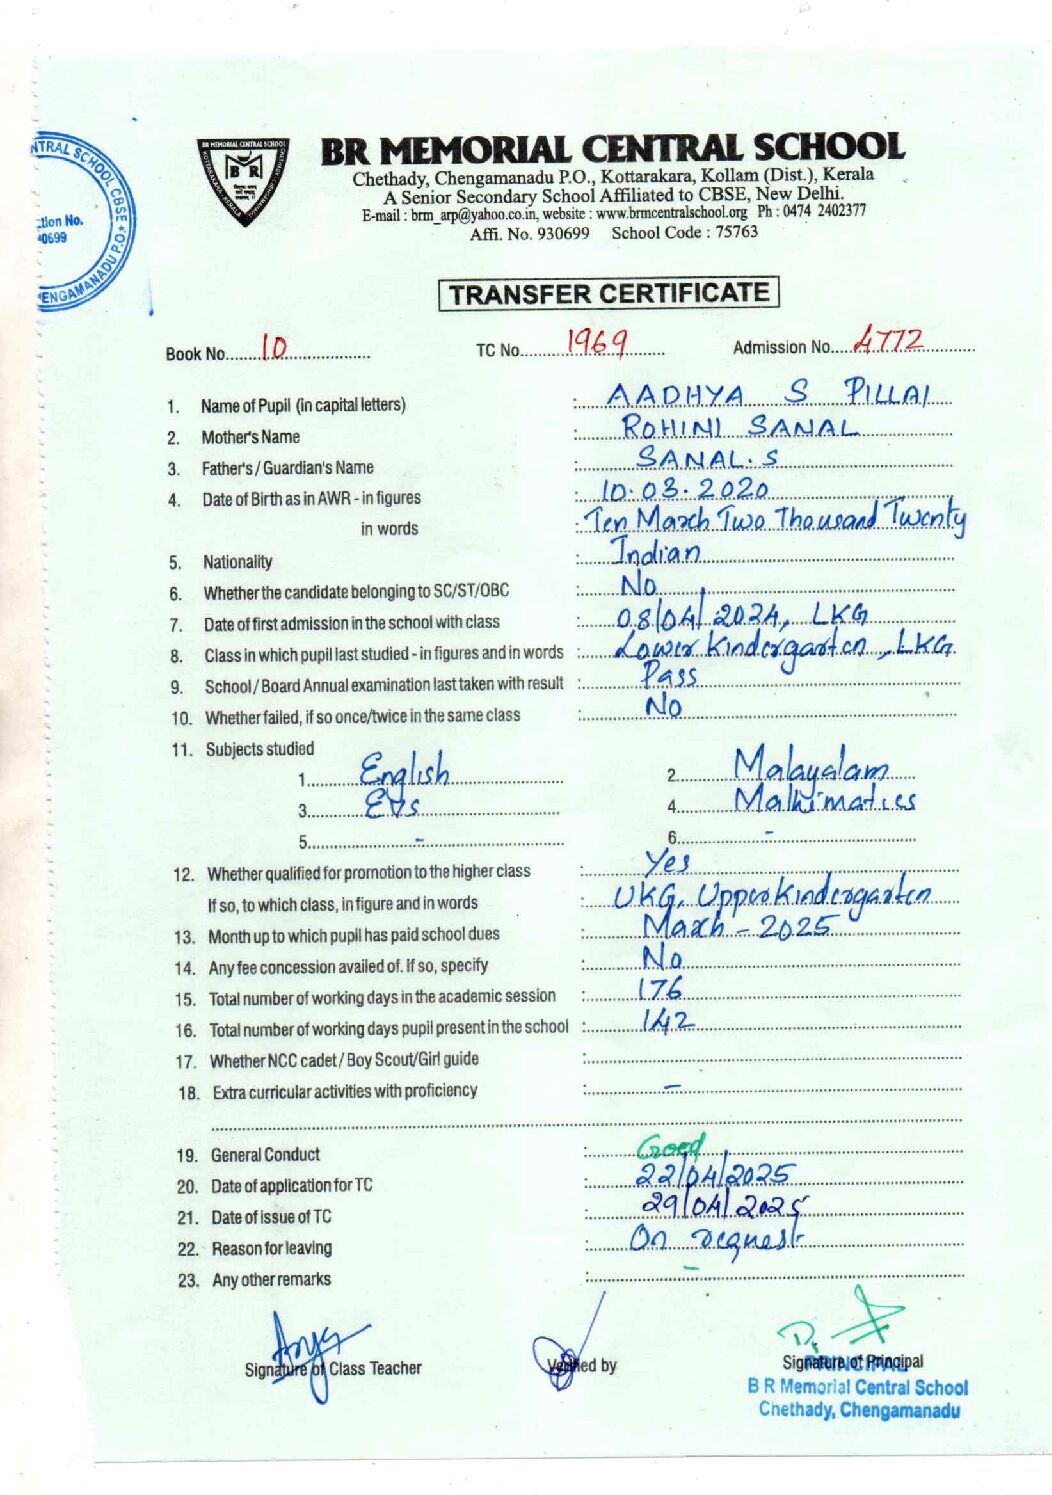 NTRAL SCHOOL CBSE
tion No.
0699
ENGAMANADU P.O.
BR MEMORIAL CENTRAL SCHOOL
B R
BR MEMORIAL CENTRAL SCHOOL
Chethady, Chengamanadu P.O., Kottarakara, Kollam (Dist.), Kerala
A Senior Secondary School Affiliated to CBSE, New Delhi.
E-mail : brm_arp@yahoo.co.in, website : www.brmcentralschool.org Ph : 0474 2402377
Affi. No. 930699 School Code : 75763
TRANSFER CERTIFICATE
Book No. 10 TC No. 1969 Admission No. 4772
1. Name of Pupil (in capital letters) : AADHYA S PILLAI
2. Mother's Name : ROHINI SANAL
3. Father's / Guardian's Name : SANAL. S
4. Date of Birth as in AWR - in figures : 10.03.2020
in words : Ten March Two Thousand Twenty
5. Nationality : Indian
6. Whether the candidate belonging to SC/ST/OBC : No
7. Date of first admission in the school with class : 08/04/2024, LKG
8. Class in which pupil last studied - in figures and in words : Lower Kindergarten, LKG
9. School / Board Annual examination last taken with result : Pass
10. Whether failed, if so once/twice in the same class : No
11. Subjects studied
1. English 2. Malayalam
3. EVS 4. Mathimatics
5. - 6. -
12. Whether qualified for promotion to the higher class : Yes
If so, to which class, in figure and in words : UKG, Upper Kindergarten
13. Month up to which pupil has paid school dues : March - 2025
14. Any fee concession availed of. If so, specify : No
15. Total number of working days in the academic session : 176
16. Total number of working days pupil present in the school : 142
17. Whether NCC cadet / Boy Scout/Girl guide :
18. Extra curricular activities with proficiency : -
19. General Conduct : Good
20. Date of application for TC : 22/04/2025
21. Date of issue of TC : 29/04/2025
22. Reason for leaving : On request
23. Any other remarks : -
Signature of Class Teacher Verified by Signature of Principal
PRINCIPAL
B R Memorial Central School
Chethady, Chengamanadu